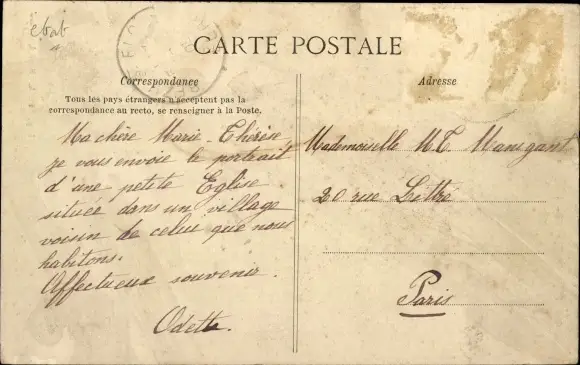 ebab
CARTE POSTALE
Correspondance
Adresse
Tous les pays étrangers n'acceptent pas la
correspondance au recto, se renseigner à la Poste.
Ma chère Marie-Thérèse
je vous envoie le portrait
d'une petite Eglise
située dans un village
voisin de celui que nous
habitons.
Affectueux souvenir.
Odette.
Mademoiselle M.T.
20 rue Littré
Paris